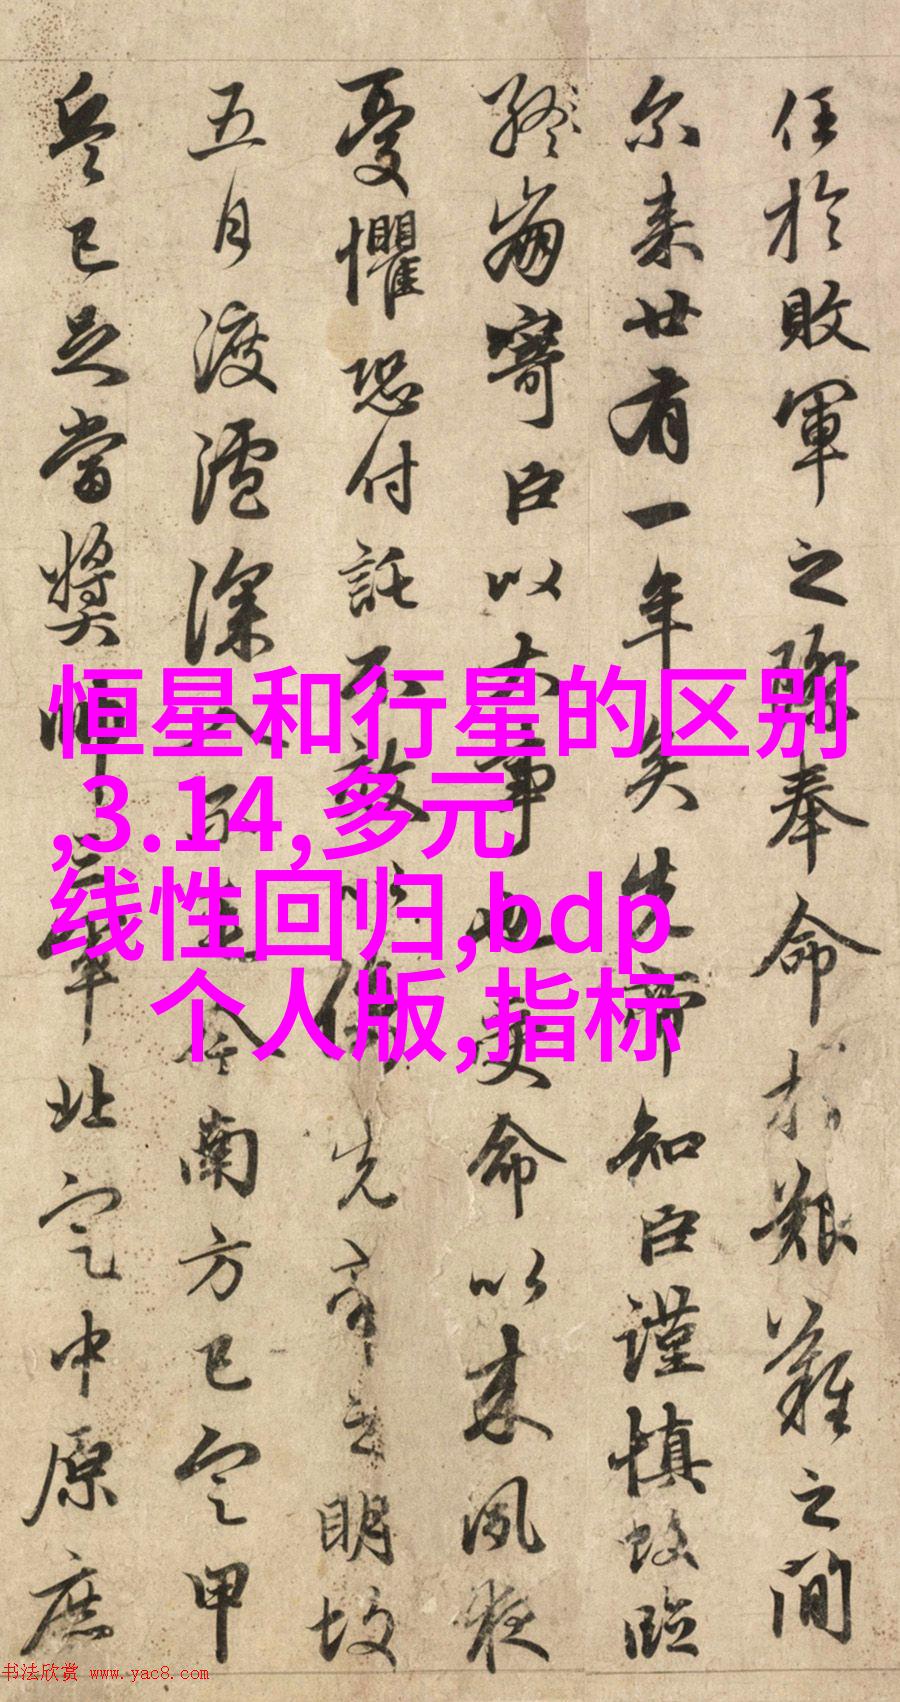 任於敗軍之際奉命於艱難之間
尔来廿有一年矣先帝知臣謹慎故臨
終崩寄臣以大事也受命以来夙夜
憂懼恐付託不效以傷先帝之明故
五月渡瀘深入不毛今南方已定甲
兵已足當獎帥三军北定中原庶
恒星和行星的区别
,3.14,多元
线性回归,bdp
个人版,指标
书法欣赏 www.yac8.com